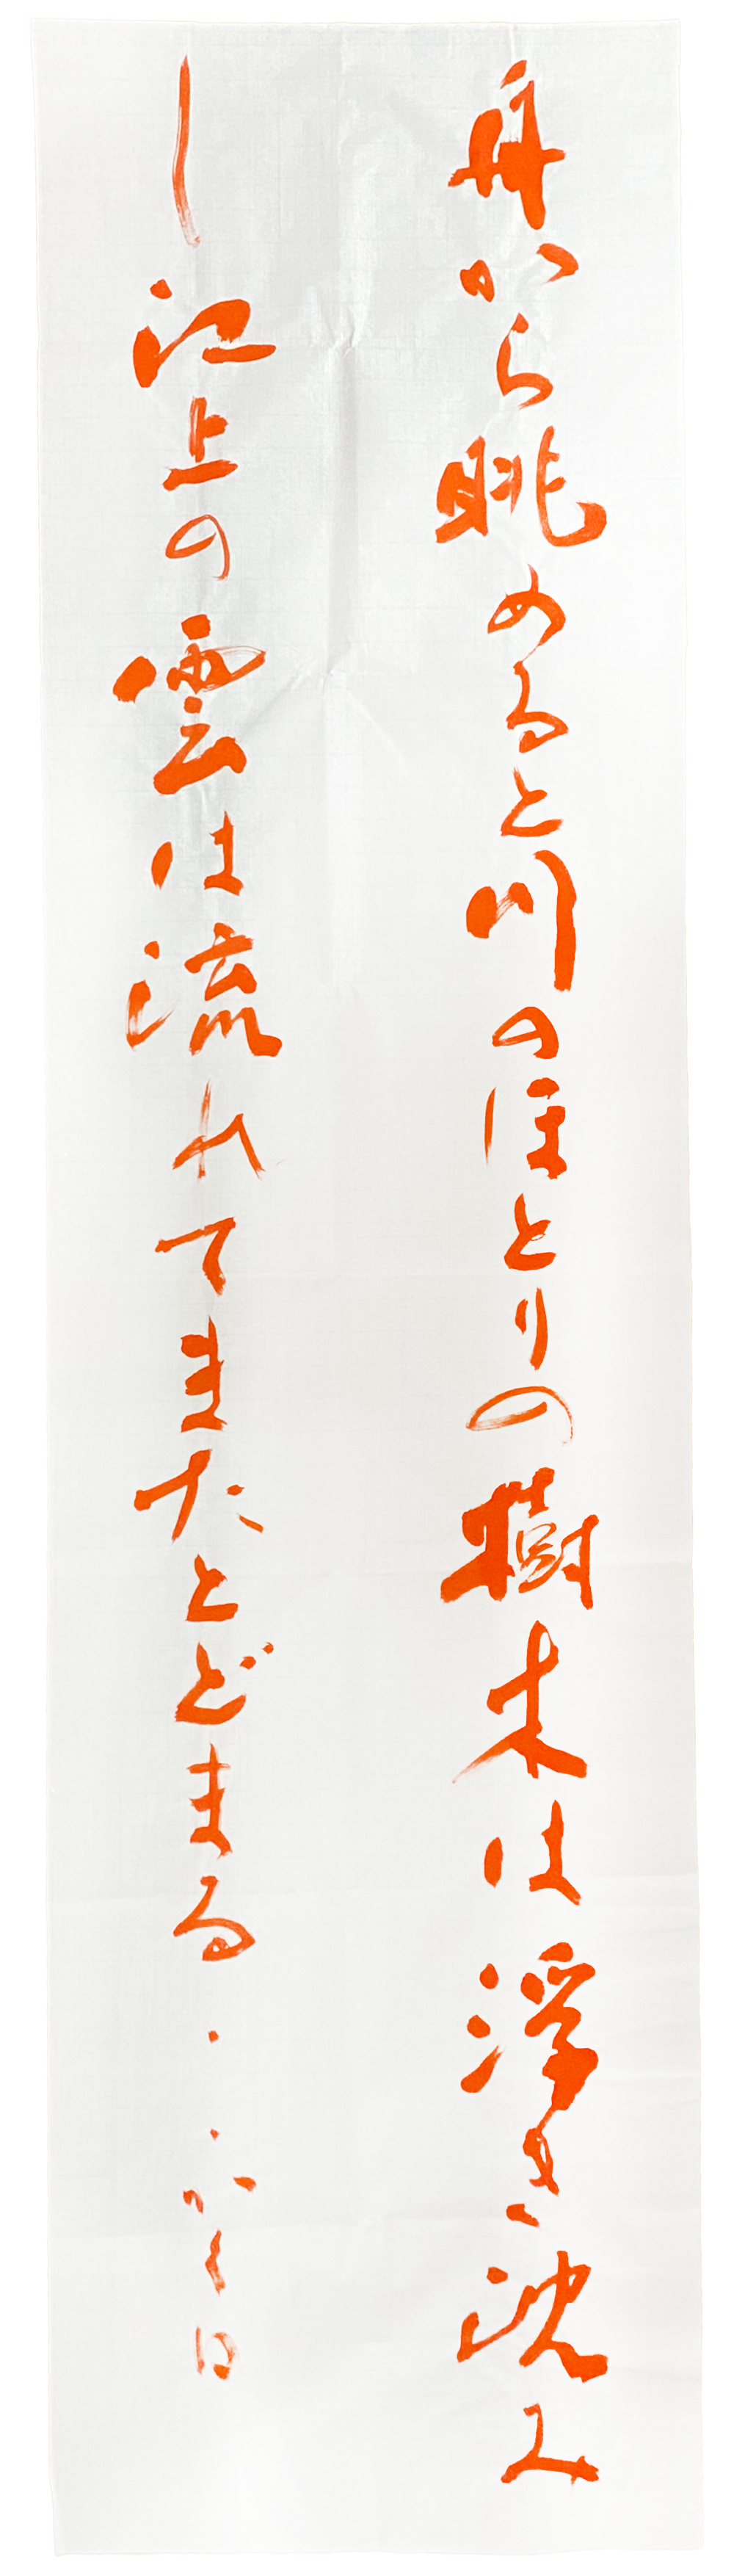 舟から眺めると川のほとりの樹木は浮き沈み
し江上の雲は流れてまたとどまる・・かく日